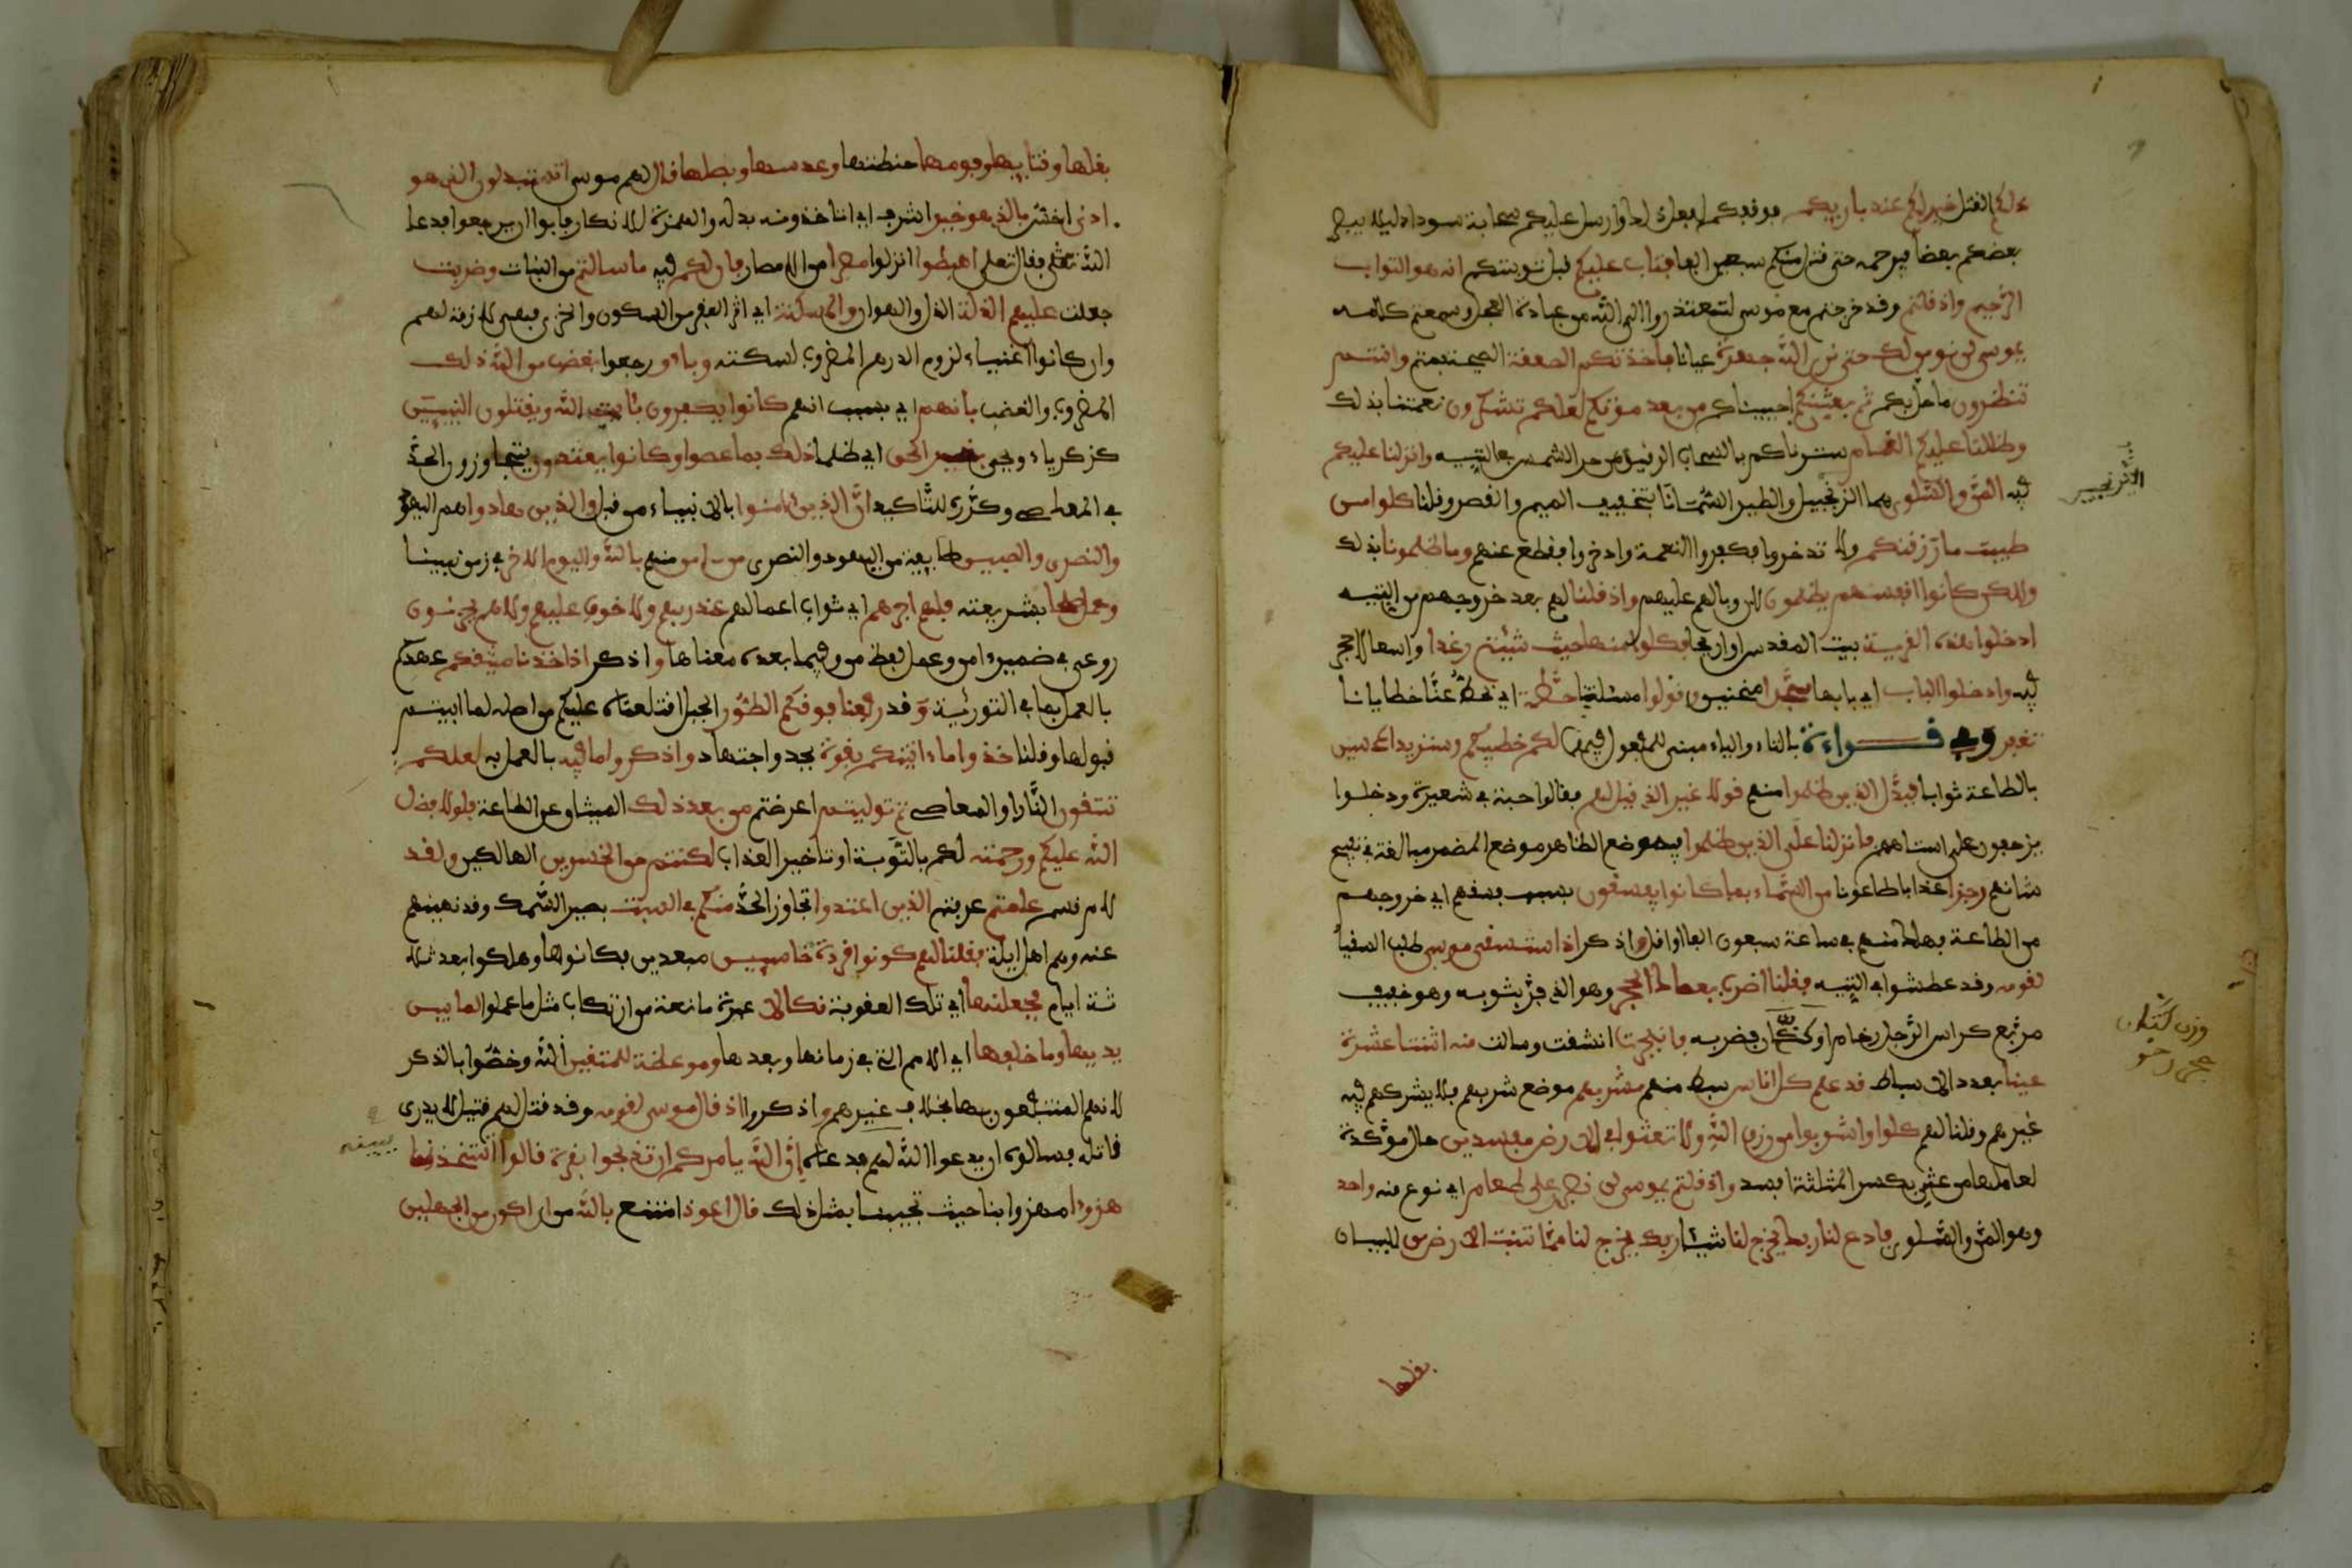 ذلكم القتل خير لكم عند باريكم فوفقكم لفعل ذلك وارسل عليكم سحابة سوداء ليلا يبصر
بعضكم بعضا فيرحمه حتى قتل منكم سبعين الفا فتاب عليكم قبل توبتكم انه هو التواب
الرحيم واذ قلتم وقد خرجتم مع موسى لتعتذروا الى الله من عبادة العجل وسمعتم كلامه
يموسى لن نومن لك حتى نرى الله جهرة عيانا فاخذتكم الصعقة الصيحة فمتم وانتم
تنظرون ما حل بكم ثم بعثنكم احييناكم من بعد موتكم لعلكم تشكرون نعمتنا بذلك
وظللنا عليكم الغمام سترناكم بالسحاب الرقيق من حر الشمس في التيه وانزلنا عليكم
فيه المن والسلوى هما الترنجبيل والطير السمانا بتخفيف الميم والقصر وقلنا كلوا من
طيبت ما رزقنكم ولا تدخروا فكفروا النعمة وادخروا فقطع عنهم وما ظلمونا بذلك
ولكن كانوا انفسهم يظلمون لان وباله عليهم واذ قلنا لهم بعد خروجهم من التيه
ادخلوا هذه القرية بيت المقدس او اريحا فكلوا منها حيث شئتم رغدا واسعا لا حجر
فيه وادخلوا الباب اي بابها سجدا منحنين وقولوا مسئلتنا حطة اي تحط عنا خطايانا
تغفر وفي قراءة بالتاء والياء مبني للمفعول فيهما لكم خطيكم وسنزيد المحسنين
بالطاعة ثوابا فبدل الذين ظلموا منهم قولا غير الذي قيل لهم فقالوا حبة في شعيرة ودخلوا
يزحفون على استاههم فانزلنا على الذين ظلموا فيه وضع الظاهر موضع المضمر مبالغة في تقبيح
شانهم رجزا عذابا طاعونا من السماء بما كانوا يفسقون بسبب فسقهم اي خروجهم
من الطاعة فهلك منهم في ساعة سبعون الفا او اقل واذكر اذ استسقى موسى طلب السقيا
لقومه وقد عطشوا في التيه فقلنا اضرب بعصاك الحجر وهو الذي فر بثوبه وهو خفيف
مربع كراس الرجل رخام او كذان فضربه فانفجرت انشقت وسالت منه اثنتا عشرة
عينا بعدد الاسباط قد علم كل اناس سبط منهم مشربهم موضع شربهم فلا يشركهم فيه
غيرهم وقلنا لهم كلوا واشربوا من رزق الله ولا تعثوا في الارض مفسدين حال موكدة
لعاملها من عثي بكسر المثلثة افسد واذ قلتم يموسى لن نصبر على طعام اي نوع منه واحد
وهو المن والسلوى فادع لنا ربك يخرج لنا شيئا ربك يخرج لنا مما تنبت الارض من للبيان
بقلها
الترنجبين
وزن كتان
حجر رخو
بقلها وقثايها وفومها حنطتها وعدسها وبصلها قال لهم موسى اتستبدلون الذي هو
ادنى اخس بالذي هو خير اشرف اي اتاخذونه بدله والهمزة للانكار فابوا ان يرجعوا فدعا
الله تعلى فقال تعلى اهبطوا انزلوا مصرا من الامصار فان لكم فيه ما سالتم من النبات وضربت
جعلت عليهم الذلة الذل والهوان والمسكنة اي اثر الفقر من السكون والخزي فهي لازمة لهم
وان كانوا اغنياء لزوم الدرهم المضروب لسكته وباءو رجعوا بغضب من الله ذلك
المضروب والغضب بانهم اي بسبب انهم كانوا يكفرون بئايت الله ويقتلون النبيين
كزكرياء ويحيى بغير الحق اي ظلما ذلك بما عصوا وكانوا يعتدون يتجاوزون الحد
في المعاصي وكرر للتاكيد ان الذين ءامنوا بالانبياء من قبل والذين هادوا هم اليهود
والنصرى والصبين طايفة من اليهود والنصرى من ءامن منهم بالله واليوم الاخر في زمن نبينا
وعمل صلحا بشريعته فلهم اجرهم اي ثواب اعمالهم عند ربهم ولا خوف عليهم ولا هم يحزنون
روعي في ضمير ءامن وعمل لفظ من وفيما بعده معناها واذكر اذ اخذنا ميثقكم عهدكم
بالعمل بما في التورية وقد رفعنا فوقكم الطور الجبل اقتلعناه عليكم من اصله لما ابيتم
قبولها وقلنا خذوا ما ءاتينكم بقوة بجد واجتهاد واذكروا ما فيه بالعمل به لعلكم
تتقون النار او المعاصي ثم توليتم اعرضتم من بعد ذلك الميثاق عن الطاعة فلولا فضل
الله عليكم ورحمته لكم بالتوبة او تاخير العذاب لكنتم من الخسرين الهالكين ولقد
لام قسم علمتم عرفتم الذين اعتدوا تجاوز الحد منكم في السبت بصيد السمك وقد نهينهم
عنه وهم اهل ايلة فقلنا لهم كونوا قردة خاسيين مبعدين فكانوها وهلكوا بعد ثلا
ثة ايام فجعلنها اي تلك العقوبة نكالا عبرة مانعة من ارتكاب مثل ما عملوا لما بين
يديها وما خلفها اي الامم التي في زمانها وبعدها وموعظة للمتقين الله وخصوا بالذكر
لانهم المنتفعون بها بخلاف غيرهم واذكروا اذ قال موسى لقومه وقد قتل لهم قتيل لا يدرى
قاتله فسالوه ان يدعوا الله لهم فدعاه ان الله يامركم ان تذبحوا بقرة قالوا اتتخذنا
هزوا مهزوا بنا حيث تجيبنا بمثل ذلك قال اعوذ امتنع بالله من ان اكون من الجهلين